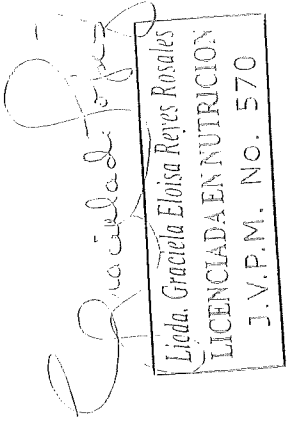 Licda. Graciela Eloisa Reyes Rosales
LICENCIADA EN NUTRICION
J.V.P.M. No. 570